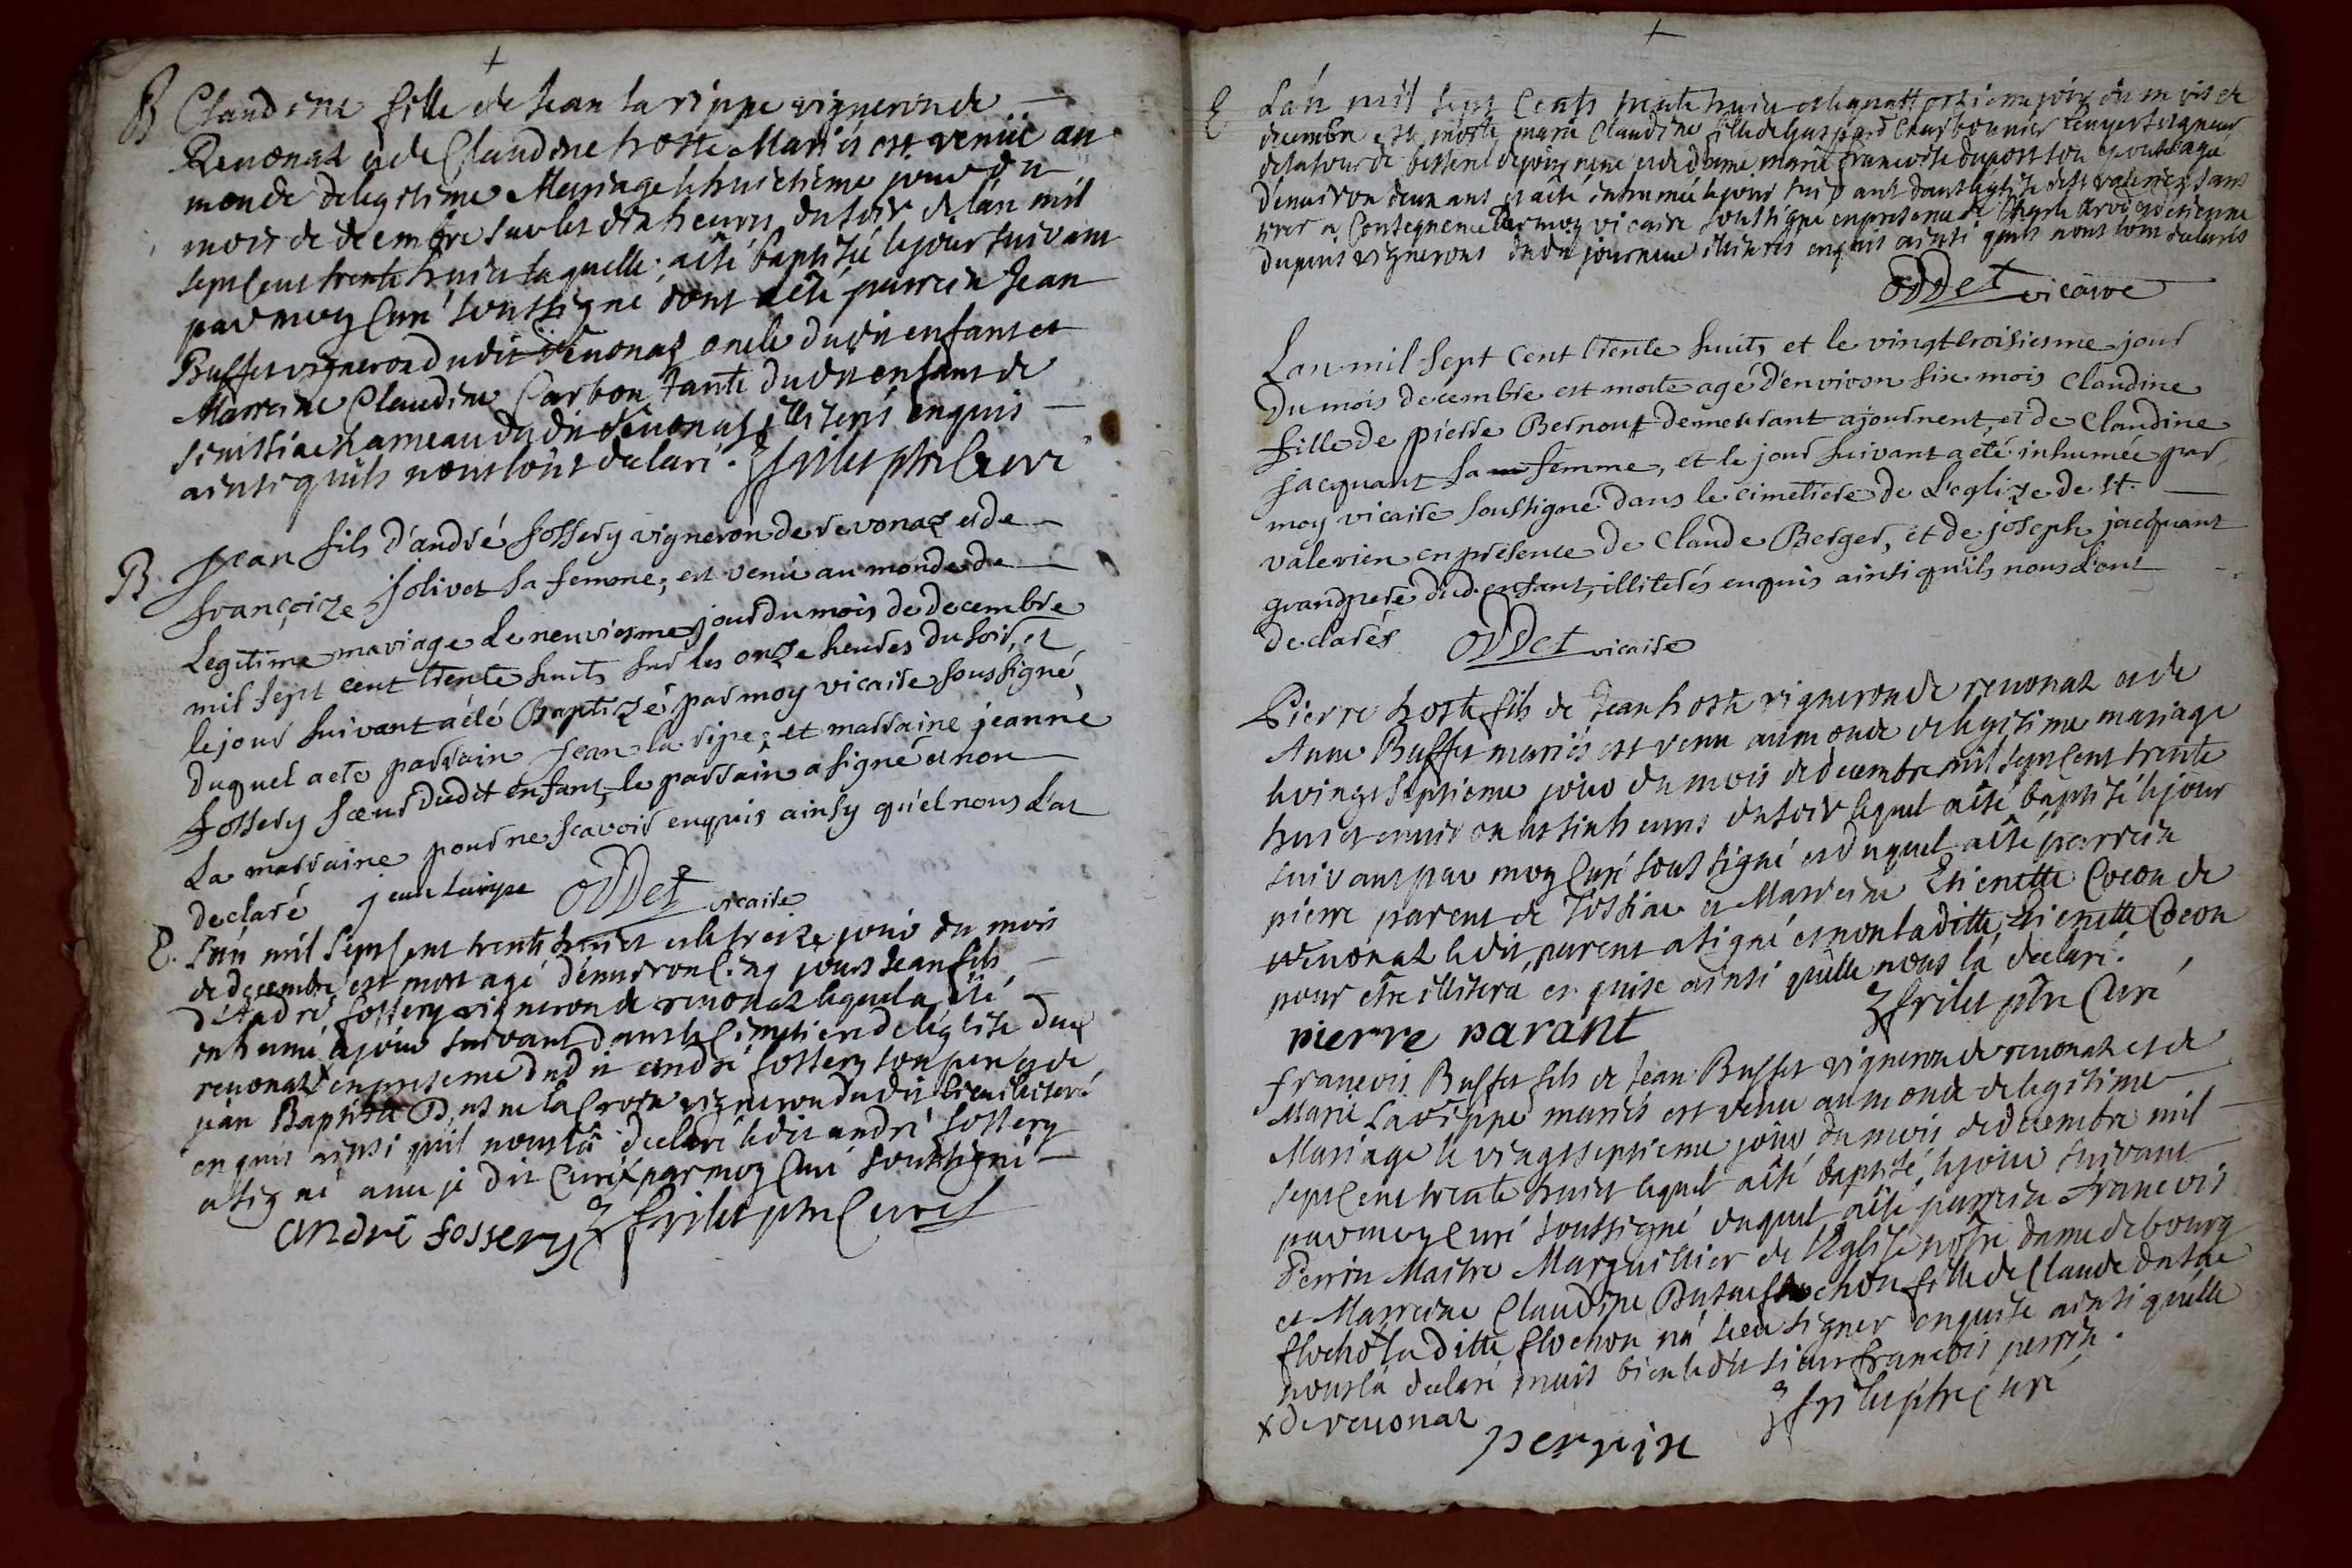 B Claudine fille de Jean la rippe vigneron de
Reuonaz et de Claudine hoste Mariés est venüe au
monde de legitime Mariage le huictieme jour du
mois de decembre sur les dix heures du soir de lán mil
sept cent trente huict laquelle a ésté baptisée le jour suivant
par moy Curé soussigné dont a ésté parrein Jean
Buffet vigneron dudit Reuonaz oncle dudit enfant et
Marreine Claudine Carbon Tante dudit enfant de
hameau dudit Reuonaz illiterés enquis
ainsi quils nous lont declaré. frilet ptre Curé
B Jean fils d'andré fossery vigneron de revonaz et de
françoize jolivet sa femme, est venu au monde de
Legitime mariage le neuviesme jour du mois de decembre
mil sept cent trente huit, sur les onze heures du soir, et
le jour suivant a été Baptizé par moy vicaire soussigné,
duquel a ete parrain jean la ripe, et marraine jeanne
fossery sœur dudit enfant, le parrain a signé et non
La marraine pour ne scavoir enquis ainsy qu'el nous l'at
declaré jean laripe Oddet vicaire
E. Lán mil sept cent trente huict et le treize joür du mois
de decembre est mort agé dénuiron cinq joürs Jean fils
d'André fossery vigneron de reuonaz lequel a ésté
inhumé le joür suivant dans le cimetiere de léglise dud
reuonaz x en presence dudit andré fossery son pere et de
jean Baptiste Dusne la Croix vigneron dudit lieu illiteré
enquis ainsi quil nous lá declaré ledit andré fossery
a signé auec je dit Curé x par moy Curé soussigné
andré fossery frilet ptre Curé
E Lán mil sept Cents trente huict et le quattorzieme joür du mois de
decembre est morte marie Claudine fille de Gaspard Charbonnier Ecuyer seigneur
de la tour de de jour nenc et de dame marie francoise dupost son epouse agée
dénuiron deux ans et a ésté inhumée le jour suivant dans léglise de st valerien sans
tirer a Consequence Par moy vicaire soussigné en presence de Charle et detienne
dupuis vignerons dudit journenc illiterés enquis ainsi quils nous lont declarés
Oddet vicaire
L'an mil sept cent trente huit, et le vingt troisiesme jour
du mois decembre est morte agé d'environ six mois Claudine
fille de pierre Bernout demeurant a journent, et de Claudine
jacquant sa femme, et le jour suivant a été inhumée par
moy vicaire soussigné dans le cimetiere de L'eglize de st.
valerien en présence de Claude Berger, et de joseph jacquant
grandpere dud. enfant, illiterés enquis ainsi qu'ils nous l'ont
declarés Oddet vicaire
Pierre hoste fils de Jean hoste vigneron de reuonaz et de
Anne Buffet mariés est venu au monde de legitime mariage
le vingt septieme joür du mois de decembre mil sept cent trente
huict enuiron les six heures du soir lequel a ésté baptisé le jour
suivant par moy Curé soussigné et duquel a ésté parrein
pierre parent de Tossiat et Marreine Etienette Cocon de
reuonaz ledit parent a signé et non la ditte Etienette Cocon
pour estre illiteré enquise ainsi quélle nous lá declaré.
pierre parant frilet ptre Curé
francois Buffet fils de Jean Buffet vigneron de reuonaz et de
Marie La rippe mariés est venu au monde de legitime
Mariage le vingt septieme joür du mois de decembre mil
sept cent trente huict lequel a ésté baptisé le joür suivant
par moy Curé soussigné duquel a ésté parrein francois
Perrin Maitre Marguillier de léglise nostre dame de bourg
et Marreine Claudine Dusne flochon fille de Claude Dusne
flocho x la ditte flochon ná sceu signer enquise ainsi quélle
nous lá declaré mais bien ledit sieur francois perrin.
x de reuonaz frilet ptre Curé
perrin